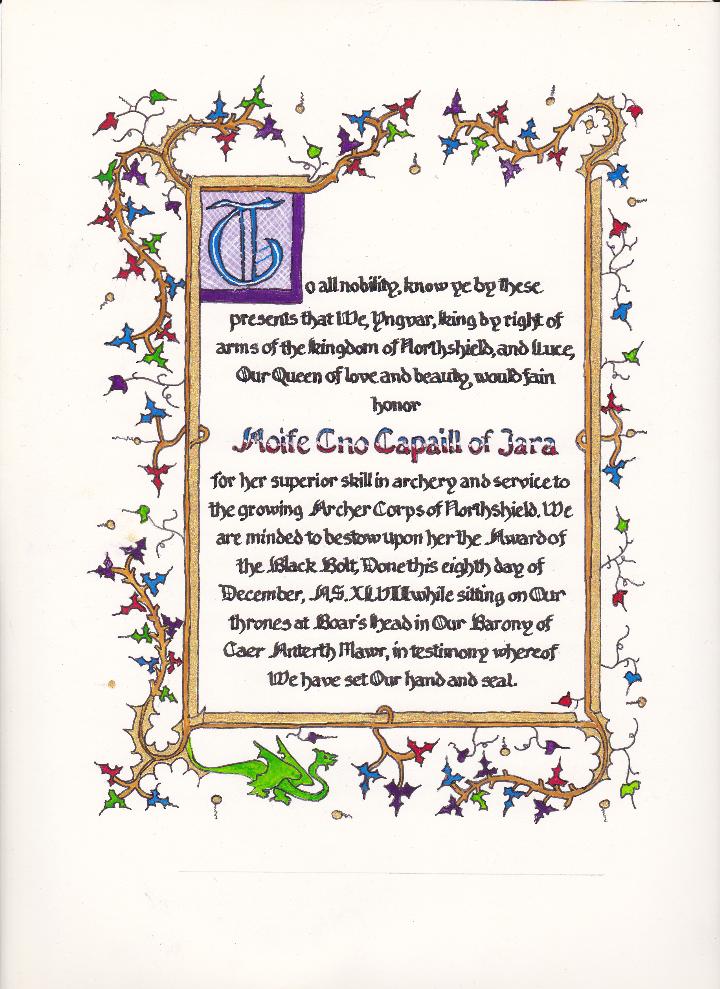 To all nobility, know ye by these
presents that We, Yngvar, king by right of
arms of the kingdom of Northshield, and Luce,
Our Queen of love and beauty, would fain
honor
Aoife Cno Capaill of Jara
for her superior skill in archery and service to
the growing Archer Corps of Northshield. We
are minded to bestow upon her the Award of
the Black Bolt, Done this eighth day of
December, A.S. XLVII while sitting on Our
thrones at Boar's head in Our Barony of
Caer Anterth Mawr, in testimony whereof
We have set Our hand and seal.